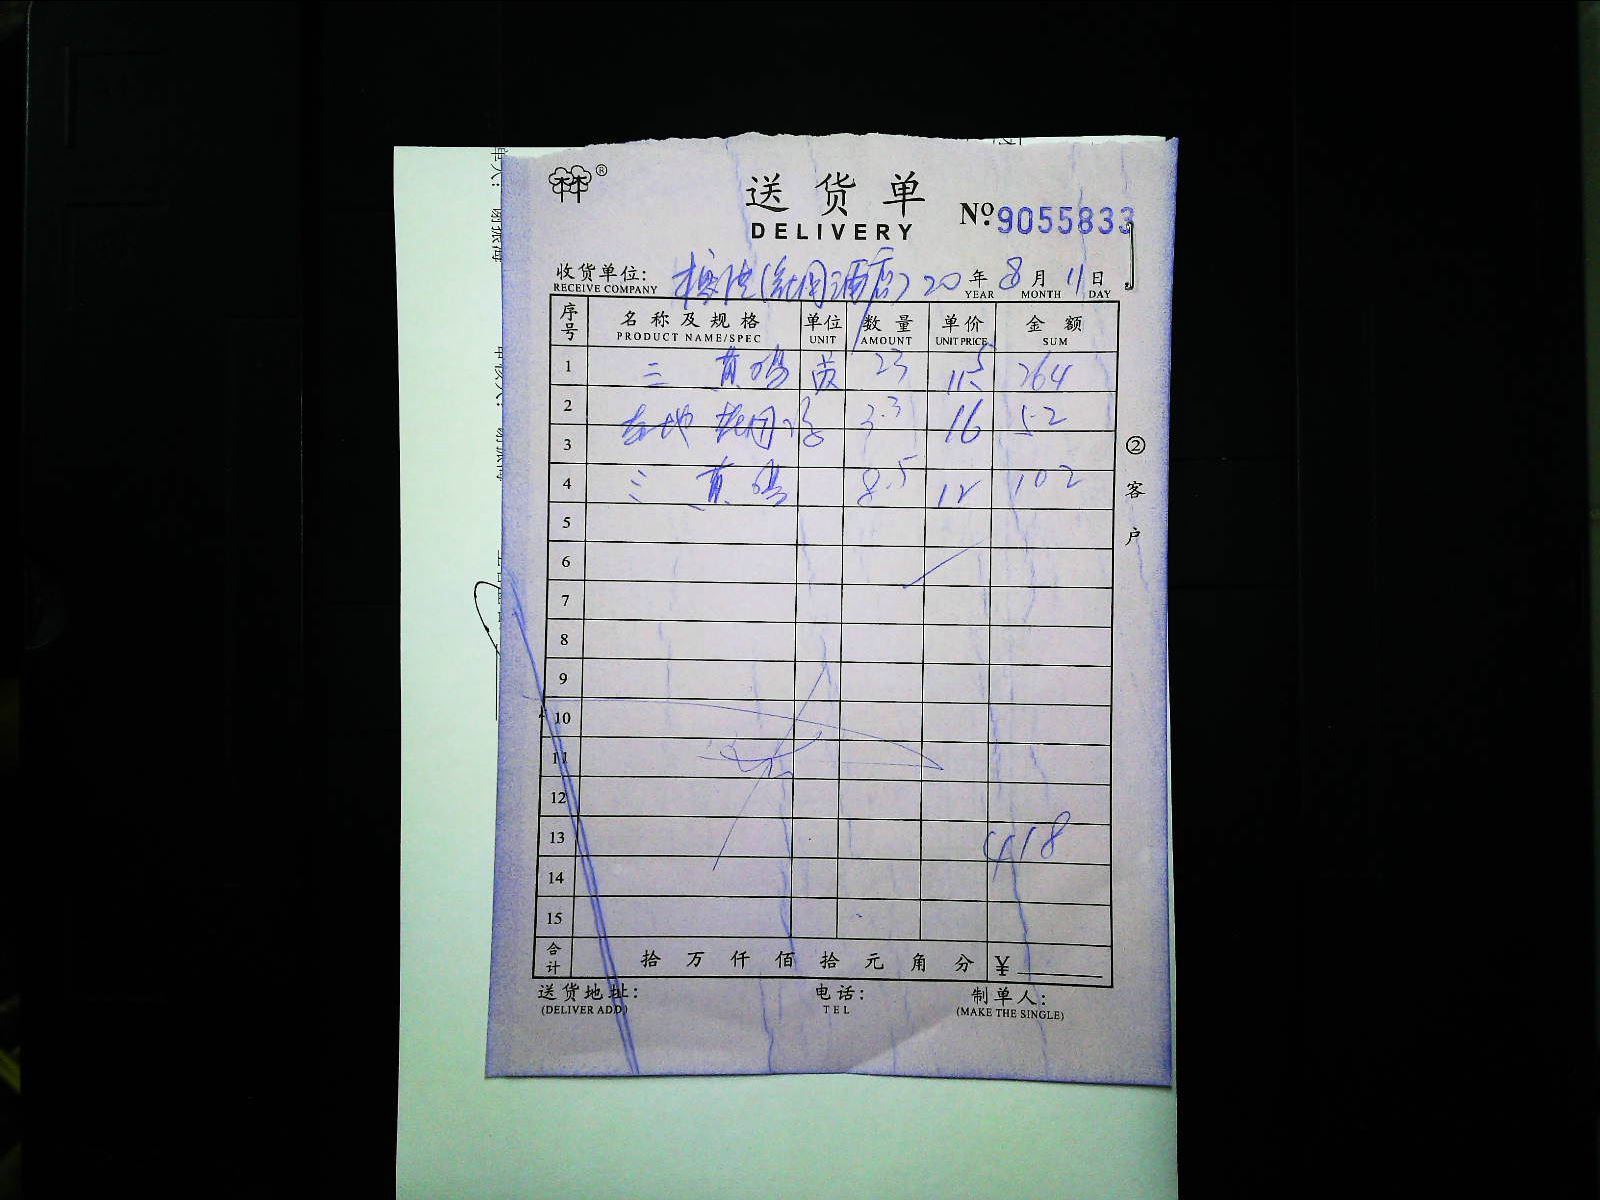 送货单
DELIVERY
№ 9055833
收货单位: 20 年 8 月 11 日
RECEIVE COMPANY YEAR MONTH DAY
序号 名称及规格 单位 数量 单价 金额
PRODUCT NAME/SPEC UNIT AMOUNT UNIT PRICE SUM
1 三黄鸡 23 11.5 264
2 3.3 16 52
3
4 三黄鸡 8.5 12 102
5
6
7
8
9
10
11
12
13 418
14
15
合计 拾 万 仟 佰 拾 元 角 分 ¥
送货地址: 电话: 制单人:
(DELIVER ADD) TEL (MAKE THE SINGLE)
②客户